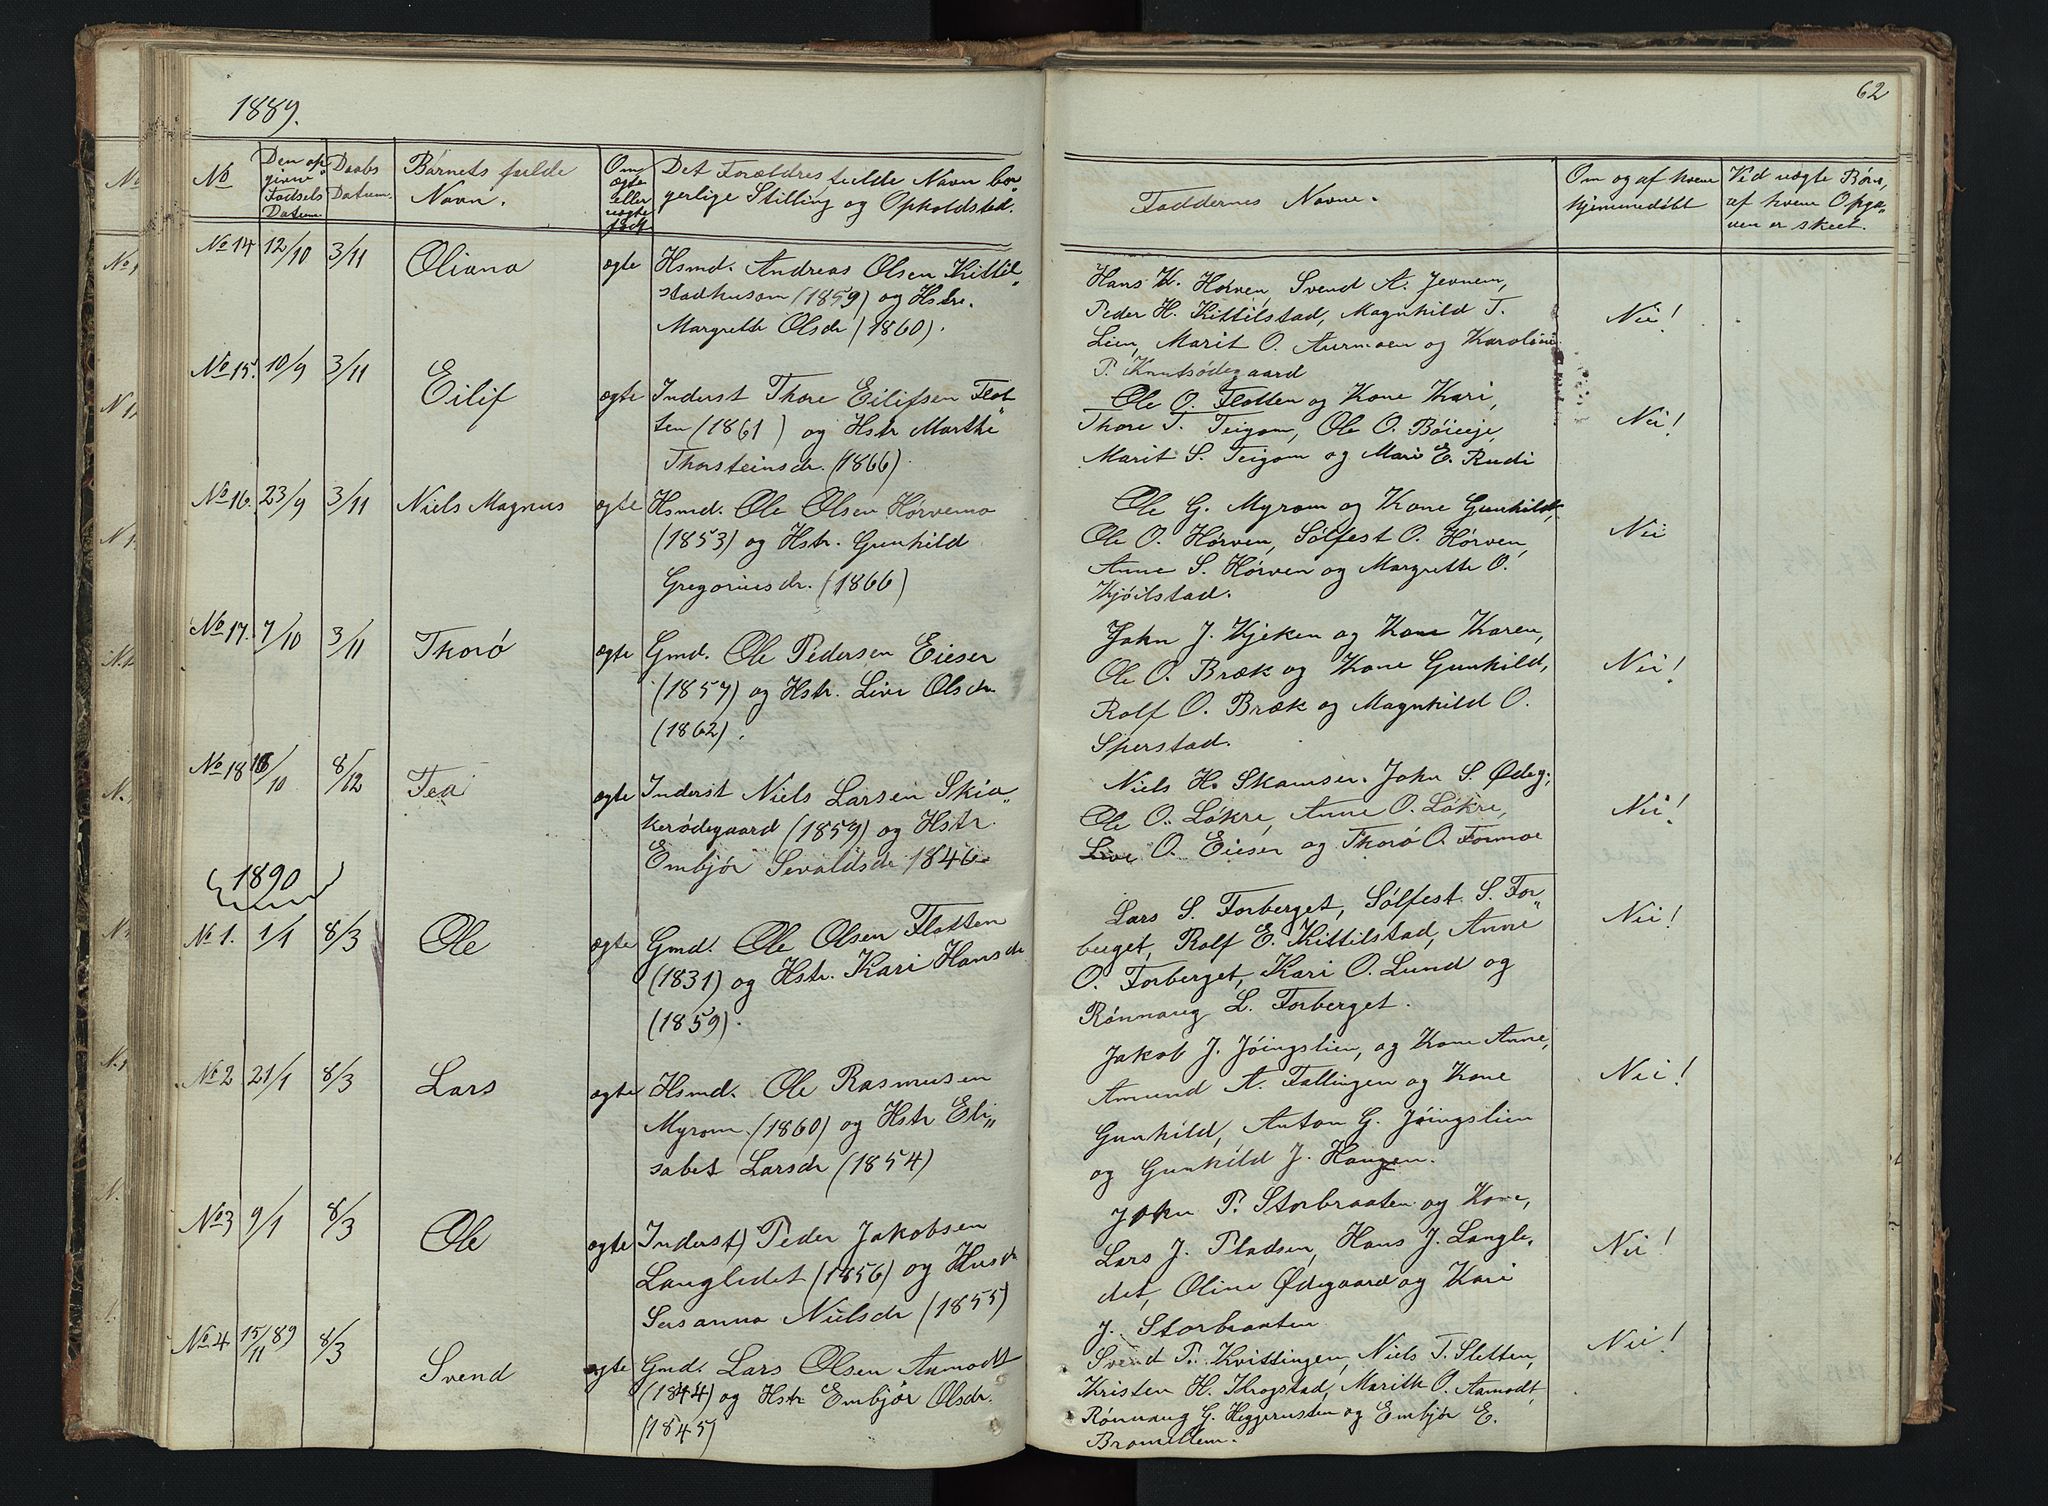 1889.
No
Den op„
givne
Fødsels
Datum.
Daabs
Datum.
Børnets fulde
Navn.
Om
ægte
eller
uægte
født
Det Forældres fulde Navn bor„
gerlige Stilling og Opholdsted.
No 14 12/10 3/11 Oliana ægte Hsmd. Andreas Olsen Kittil„
stadhusom (1859) og Hstr.
Margrethe Olsdr (1860).
No 15. 10/9 3/11 Eilif ægte Inderst Thore Eilifsen Flot„
ten (1861) og Hstr Marthe
Thorsteinsdr. (1866).
No 16. 23/9 3/11 Niels Magnus ægte Hsmd. Ole Olsen Hørvemo
(1853) og Hstr. Gunhild
Gregoriusdr. (1866)
No 17. 7/10 3/11 Thorø ægte Gmd. Ole Pedersen Eieser
(1857) og Hstr. Live Olsdr.
(1862).
No 18 /10 8/12 Tea ægte Inderst Niels Larsen Skia„
kerødegaard (1859) og Hstr.
Embjør Sevaldsdr 1846.
1890
No 1. 1/1 8/3 Ole ægte Gmd. Ole Olsen Flotten
(1831) og Hstr. Kari Hansdr
(1859).
No 2 21/1 8/3 Lars ægte Hsmd. Ole Rasmusen
Myrom. (1860) og Hstr Eli„
sabet Larsdr (1854)
No 3 9/1 8/3 Ole ægte Inderst) Peder Jakobsen
Langledet (1856) og Husdr
Susanna Nielsdr (1855)
No 4 15/11 89 8/3 Svend ægte Gmd. Lars Olsen Aamodt
(1844) og Hstr Embjør Olsdr.
(1845)
62
Faddernes Navne.
Om og af hvem
hjemmedøbt
Ved uægte Børn,
af hvem Opga„
ven er skeet.
Hans K. Hørven, Svend A. Jevnem,
Peder H. Kittilstad, Magnhild T.
Lien, Marit O. Aurmoen og Karoline
P. Knutsødegaard
Nei!
Ole O. Flotten og Kone Kari,
Thore T. Teigom, Ole O. Bøieeje,
Marit S. Teigom og Mari E. Rudi
Nei!
Ole G. Myrom og Kone Gunhild,
Ole O. Hørven, Sølfest O. Hørven,
Anne S. Hørven og Margrethe O.
Kjøilstad.
Nei
John J. Kjeken og Kone Karen,
Ole O. Bræk og Kone Gunhild,
Rolf O. Bræk og Magnhild O.
Sperstad.
Nei!
Niels H. Skamser. John S. Ødeg.,
Ole O. Løkre, Anne O. Løkre,
Live O. Eieser og Thorø O. Formoe
Nei!
Lars S. Forberget, Sølfest S. For„
berget, Rolf E. Kittilstad, Anne
O. Forberget, Kari O. Lund og
Rønnaug L. Forberget.
Nei!
Jakob J. Jøingslien, og Kone Anne,
Amund A. Fallingen og Kone
Gunhild, Anton G. Jøingslien
og Gunhild J. Haugen.
Nei!
John P. Storbraaten og Kone,
Lars J. Pladsen, Hans J. Langle„
det, Oline Ødegaard og Kari
J. Storbraaten
Nei!
Svend P. Kvittingen, Niels T. Sletten,
Kristen H. Krogstad, Marith O. Aamodt,
Rønnaug G. Heggerusten og Embjør E.
Bromillem.
Nei!